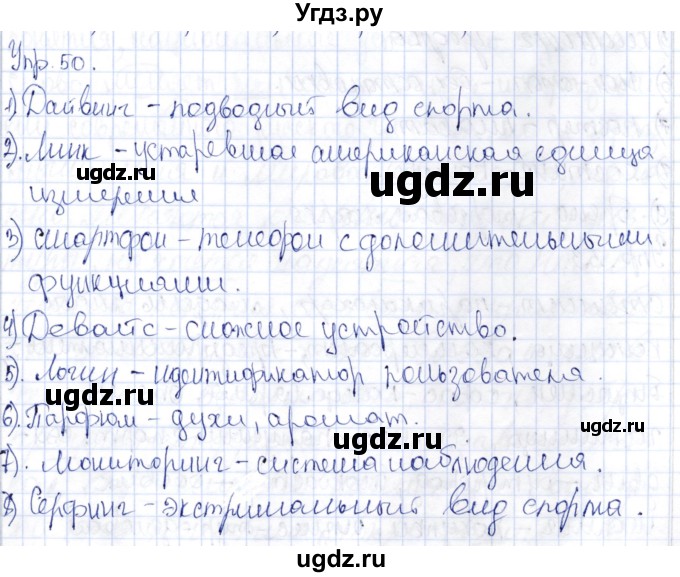 Угдз.ру
Упр. 50.
1) Дайвинг – подводный вид спорта.
2). Линк – устаревшая американская единица
измерения
ugdz.ru
ugdz.ru
3) Смартфон – телефон с дополнительными
функциями.
ugdz.ru
4) Девайс – сложное устройство.
5). Логин – идентификатор пользователя.
6). Парфюм – духи, аромат.
ugdz.ru
ugdz.ru
7). Мониторинг – система наблюдения.
8) Серфинг – экстримальный вид спорта.
ugdz.ru
ugdz.ru